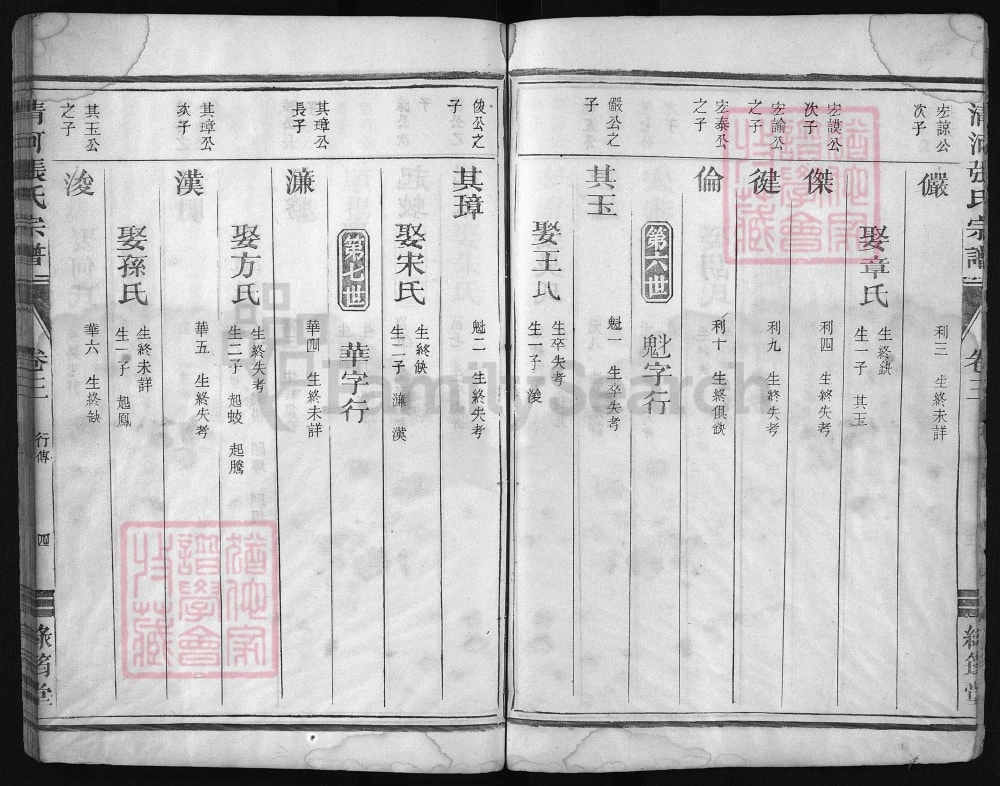 清河張氏宗譜
卷三
宏諒公
次子
儼
利三 生終未詳
娶章氏
生終缺
生一子 其玉
宏謨公
次子
傑
利四 生終失考
宏諭公
之子
健
利九 生終失考
宏泰公
之子
倫
利十 生終俱缺
第六世
魁字行
儼公之
子
其玉
魁一 生卒失考
娶王氏
生卒失考
生一子 浚
俊公之
子
其璋
魁二 生終失考
娶宋氏
生終缺
生二子 濂 漢
第七世
華字行
其璋公
長子
濂
華四 生終未詳
其璋公
次子
漢
華五 生終失考
娶方氏
生終失考
生二子 起蛟 起騰
其玉公
之子
浚
華六 生終缺
娶孫氏
生終未詳
生一子 起鳳
清河張氏宗譜
卷三
行傳
四
FamilySearch